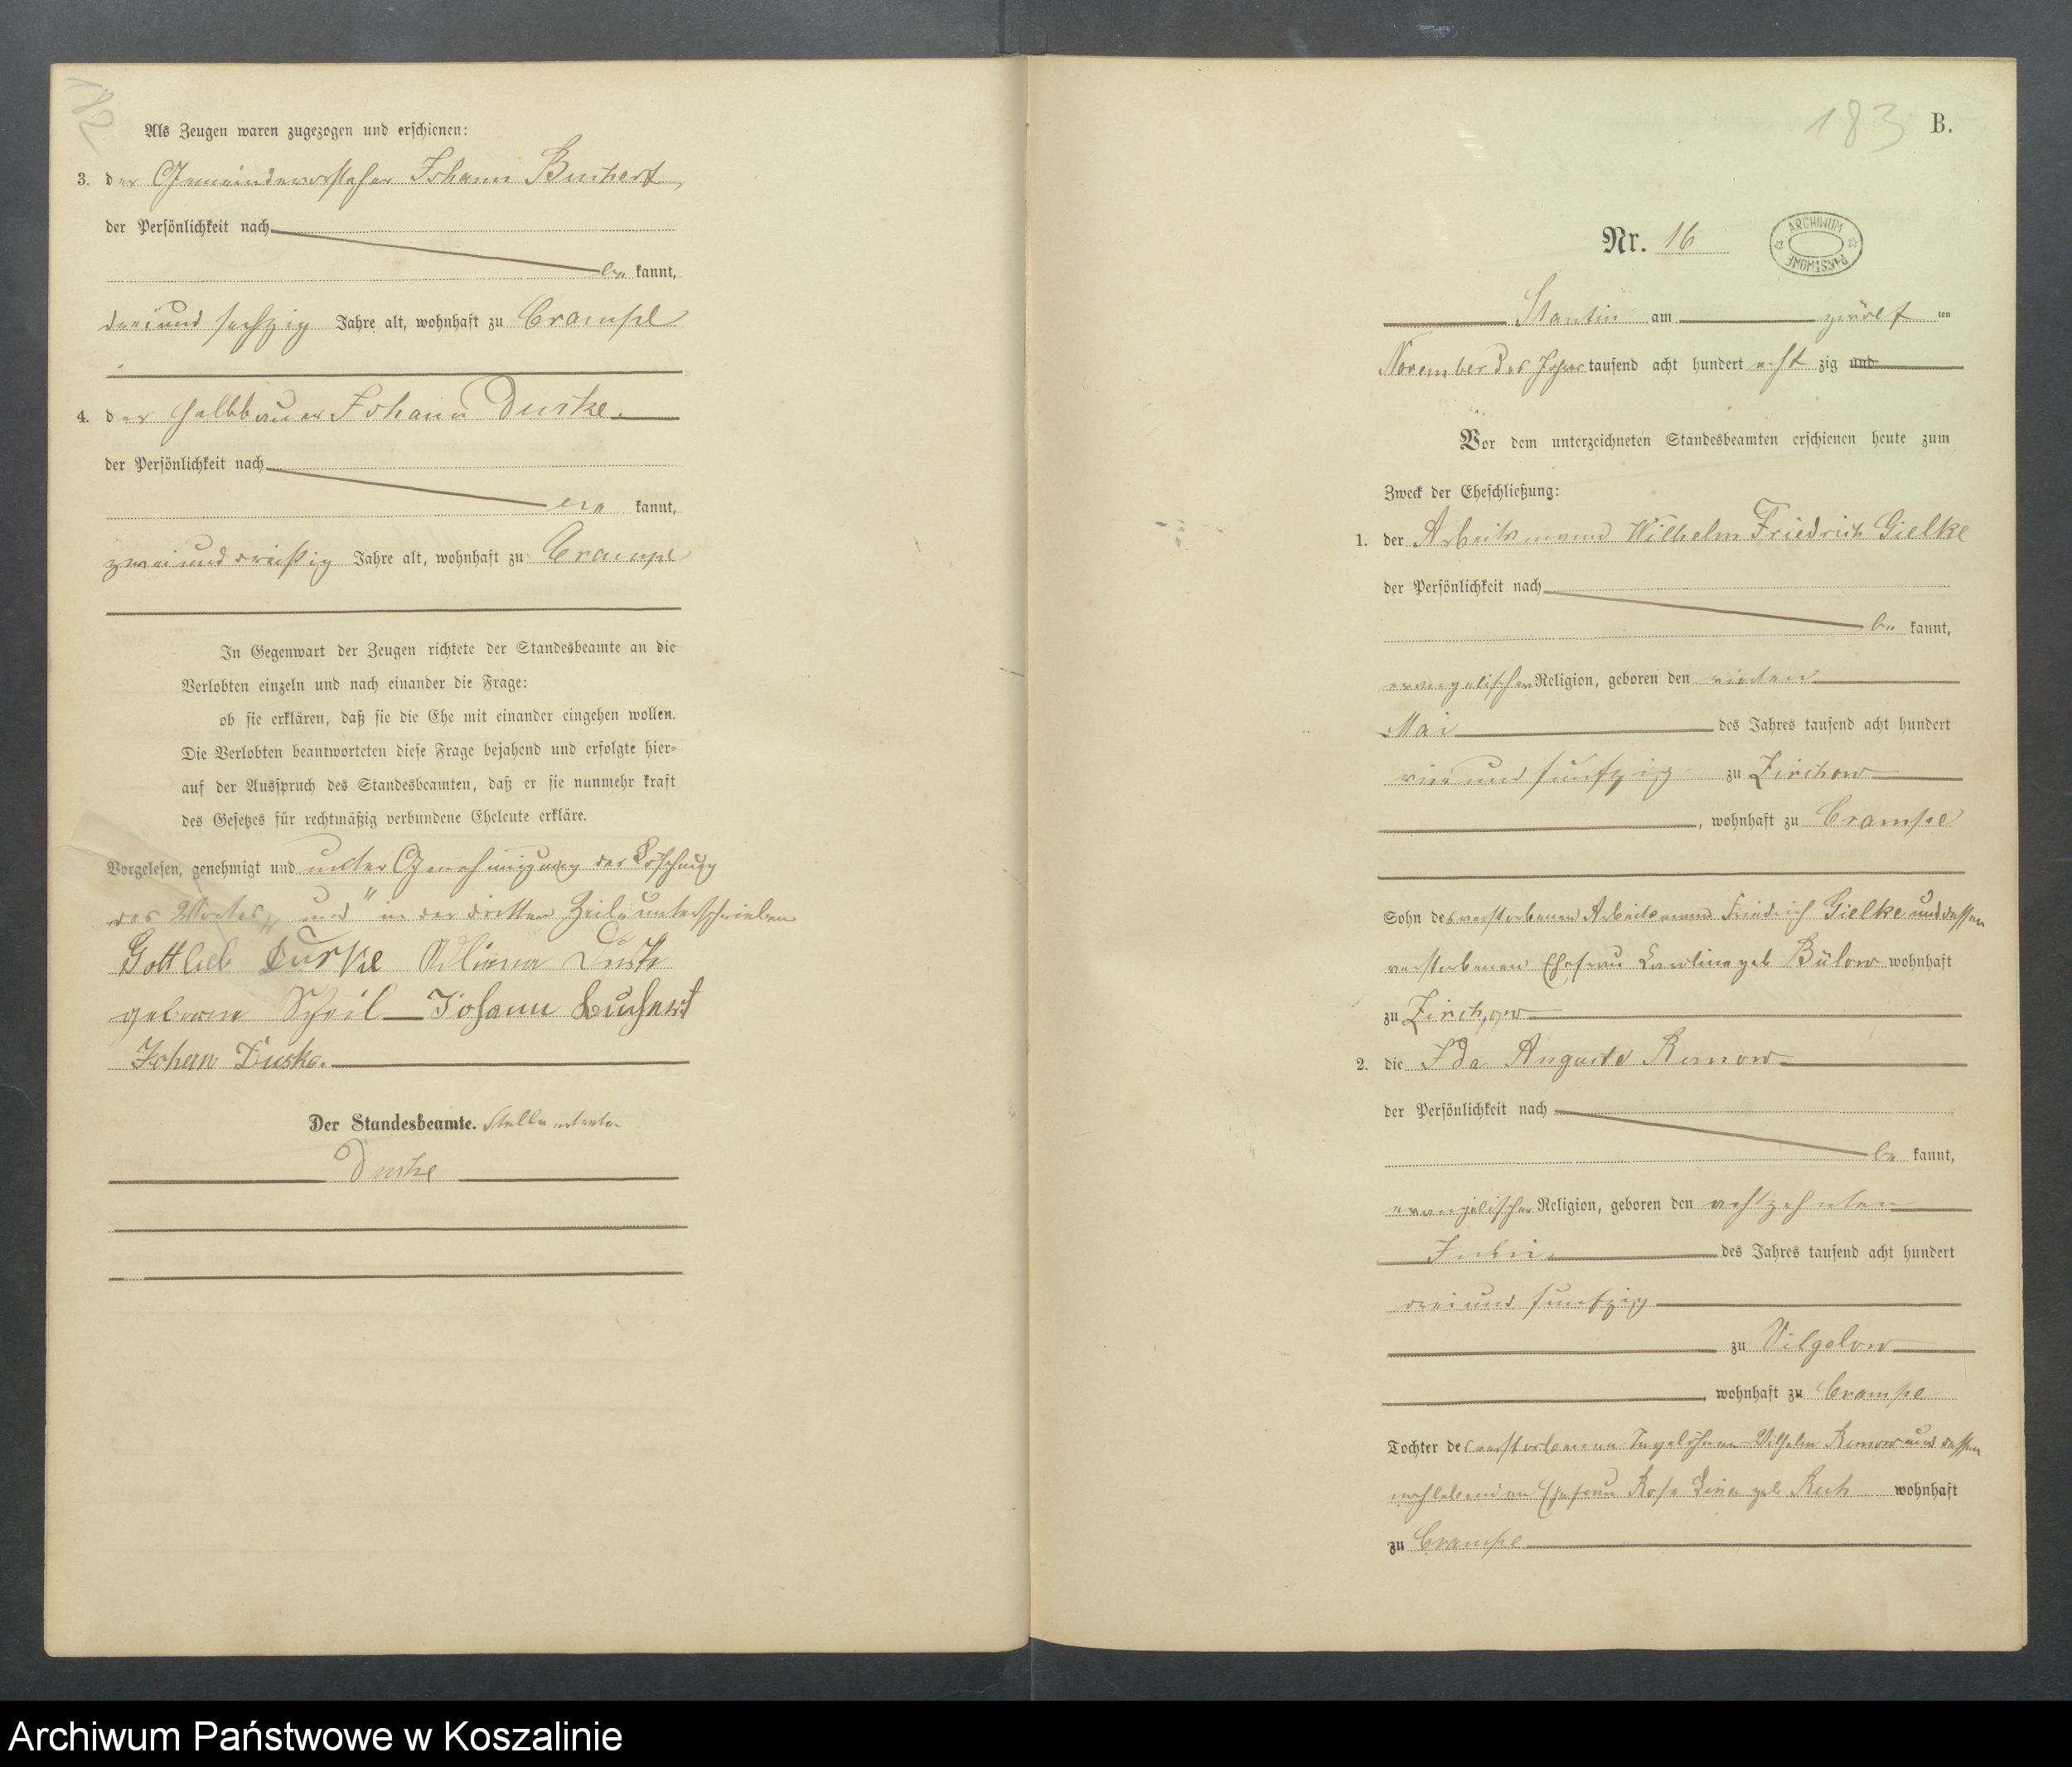 182
Als Zeugen waren zugezogen und erschienen:
3. der Gemeindevorsteher Johann Buchert,
der Persönlichkeit nach
be kannt,
dreiundsechzig Jahre alt, wohnhaft zu Crampe
4. der Halbbauer Johann Duske.
der Persönlichkeit nach
be kannt,
zweiunddreißig Jahre alt, wohnhaft zu Crampe
In Gegenwart der Zeugen richtete der Standesbeamte an die
Verlobten einzeln und nach einander die Frage:
ob sie erklären, daß sie die Ehe mit einander eingehen wollen.
Die Verlobten beantworteten diese Frage bejahend und erfolgte hier-
auf der Ausspruch des Standesbeamten, daß er sie nunmehr kraft
des Gesetzes für rechtmäßig verbundene Eheleute erkläre.
Vorgelesen, genehmigt und unter Genehmigung der Löschung
des Wortes „und" in der dritten Zeile unterschrieben
Gottlieb Duske Duske
geborene Johann Buchert
Johann Duske.
Der Standesbeamte. Stellvertreter
Duske
183 B.
Nr. 16
ARCHIWUM PAŃSTWOWE
Stantin am zwölf ten
November des Jahres tausend acht hundert acht zig und
Vor dem unterzeichneten Standesbeamten erschienen heute zum
Zweck der Eheschließung:
1. der Arbeitsmann Wilhelm Friedrich Gielke
der Persönlichkeit nach
be kannt,
evangelischer Religion, geboren den vierten
Mai des Jahres tausend acht hundert
vier und funfzig zu Zirchow
, wohnhaft zu Crampe
Sohn des verstorbenen Arbeitsmann Friedrich Gielke und dessen
verstorbenen Ehefrau Karoline geb Bülow wohnhaft
zu Zirchow
2. die Ida Auguste Runow
der Persönlichkeit nach
be kannt,
evangelischer Religion, geboren den achtzehnten
des Jahres tausend acht hundert
drei und funfzig
zu Vilgelow
, wohnhaft zu Crampe
Tochter des verstorbenen Tagelöhner Wilhelm Runow und dessen
nachlebenden Ehefrau geb wohnhaft
zu Crampe
Archiwum Państwowe w Koszalinie